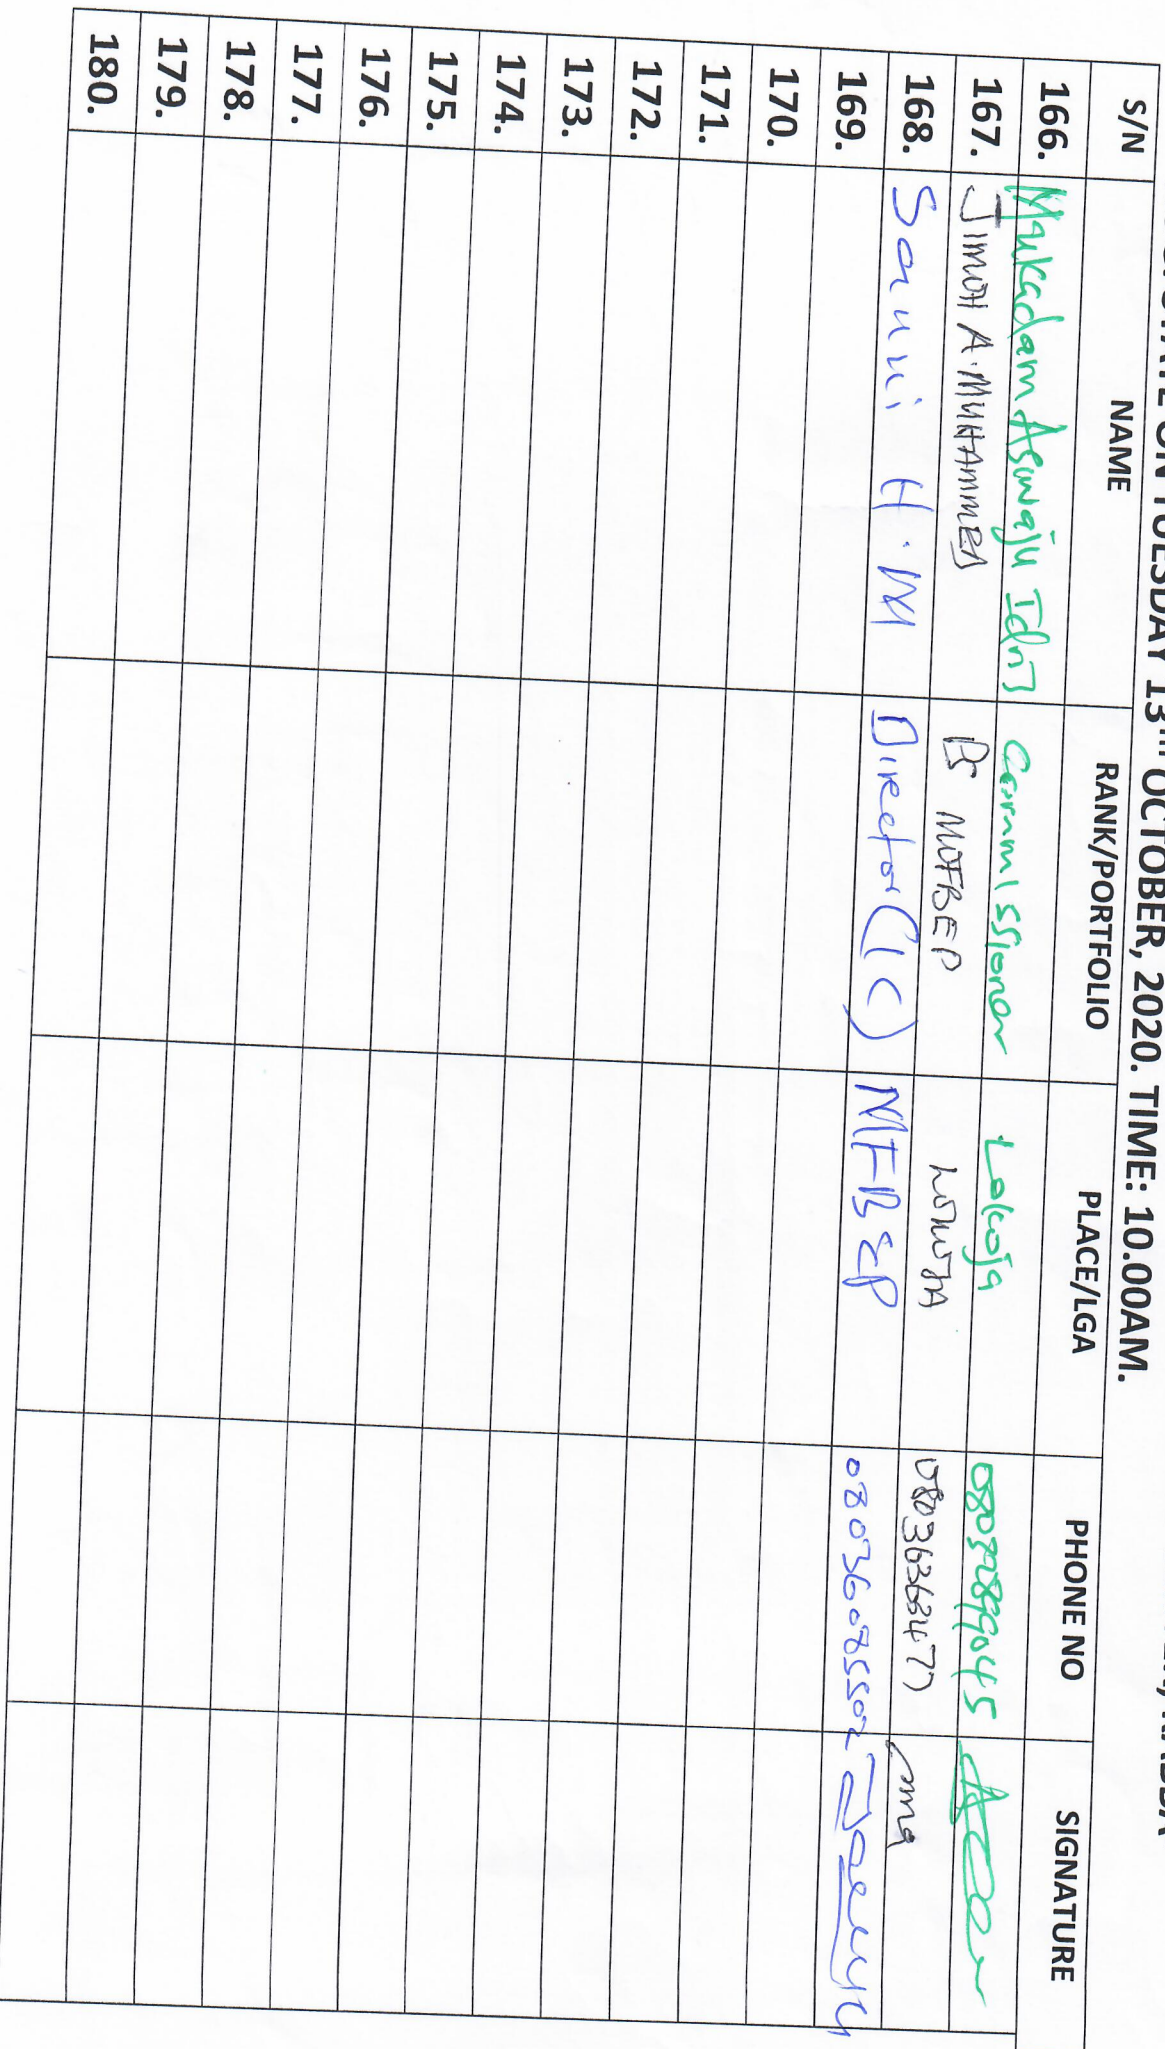 STATE ON TUESDAY 13TH OCTOBER, 2020. TIME: 10.00AM.
S/N NAME RANK/PORTFOLIO PLACE/LGA PHONE NO SIGNATURE
166. Mukadam Asiwaju Idris Commissioner Lokoja
167. JIMOH A. MUHAMMED PS MOFBEP LOKOJA 08036363477
168. Sanni H. M Director (IC) MFB&P 08036085502
169.
170.
171.
172.
173.
174.
175.
176.
177.
178.
179.
180.